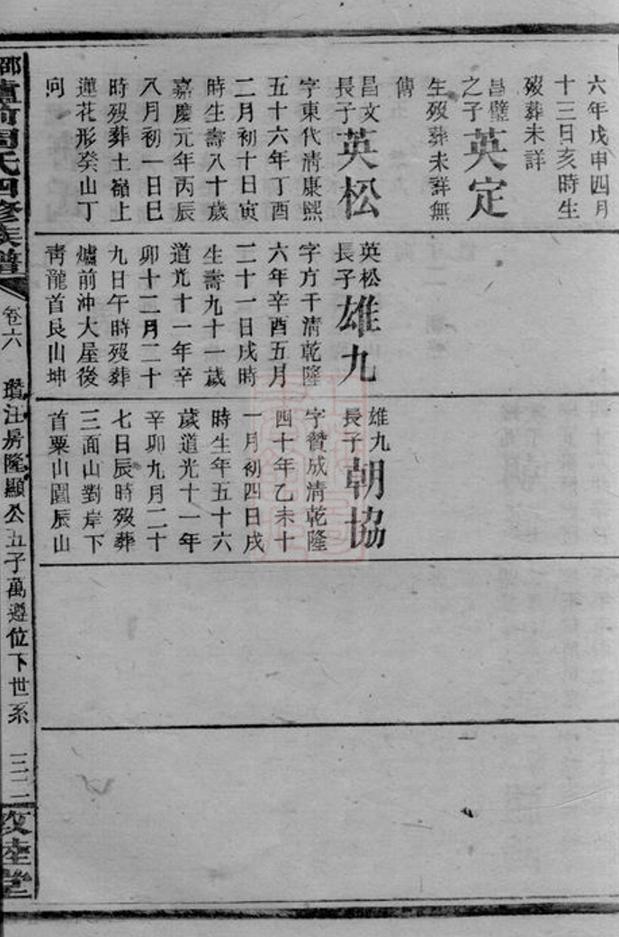 六年戊申四月
十三日亥時生
歿葬未詳
昌璧之子
英定
生歿葬未詳無
傳
昌文長子
英松
字東代清康熙
五十六年丁酉
二月初十日寅
時生壽八十歲
嘉慶元年丙辰
八月初一日巳
時歿葬土嶺上
蓮花形癸山丁
向
英松長子
雄九
字方干清乾隆
六年辛酉五月
二十一日戌時
生壽九十一歲
道光十一年辛
卯十二月二十
九日午時歿葬
爐前沖大屋後
靑龍首艮山坤
雄九長子
朝協
字贊成清乾隆
四十年乙未十
一月初四日戌
時生年五十六
歲道光十一年
辛卯九月二十
七日辰時歿葬
三面山對岸下
首粟山園辰山
邵
周氏四修族譜
卷六
瓚汪房隆顯公五子萬遵位下世系
三二
敦睦堂